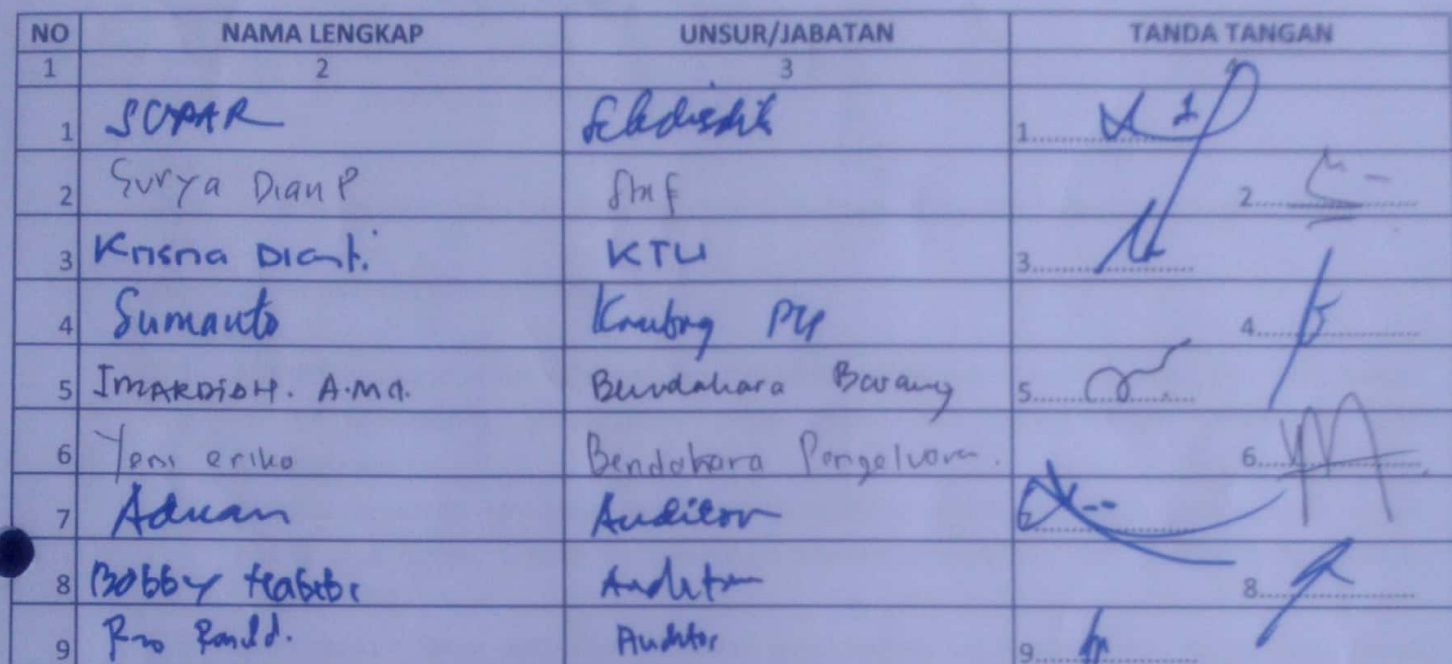 NO NAMA LENGKAP UNSUR/JABATAN TANDA TANGAN
1 2 3 4
1 SUPAR 1
2 Surya Dian P Staf 2
3 Krisna Dianti KTU 3
4 Sumanto 4
5 IMARDIAH. A.Md. Bendahara Barang 5
6 Yeni eriko Bendahara Pengeluaran. 6
7 Adnan Auditor
8 Bobby Habibi Auditor 8
9 Auditor 9